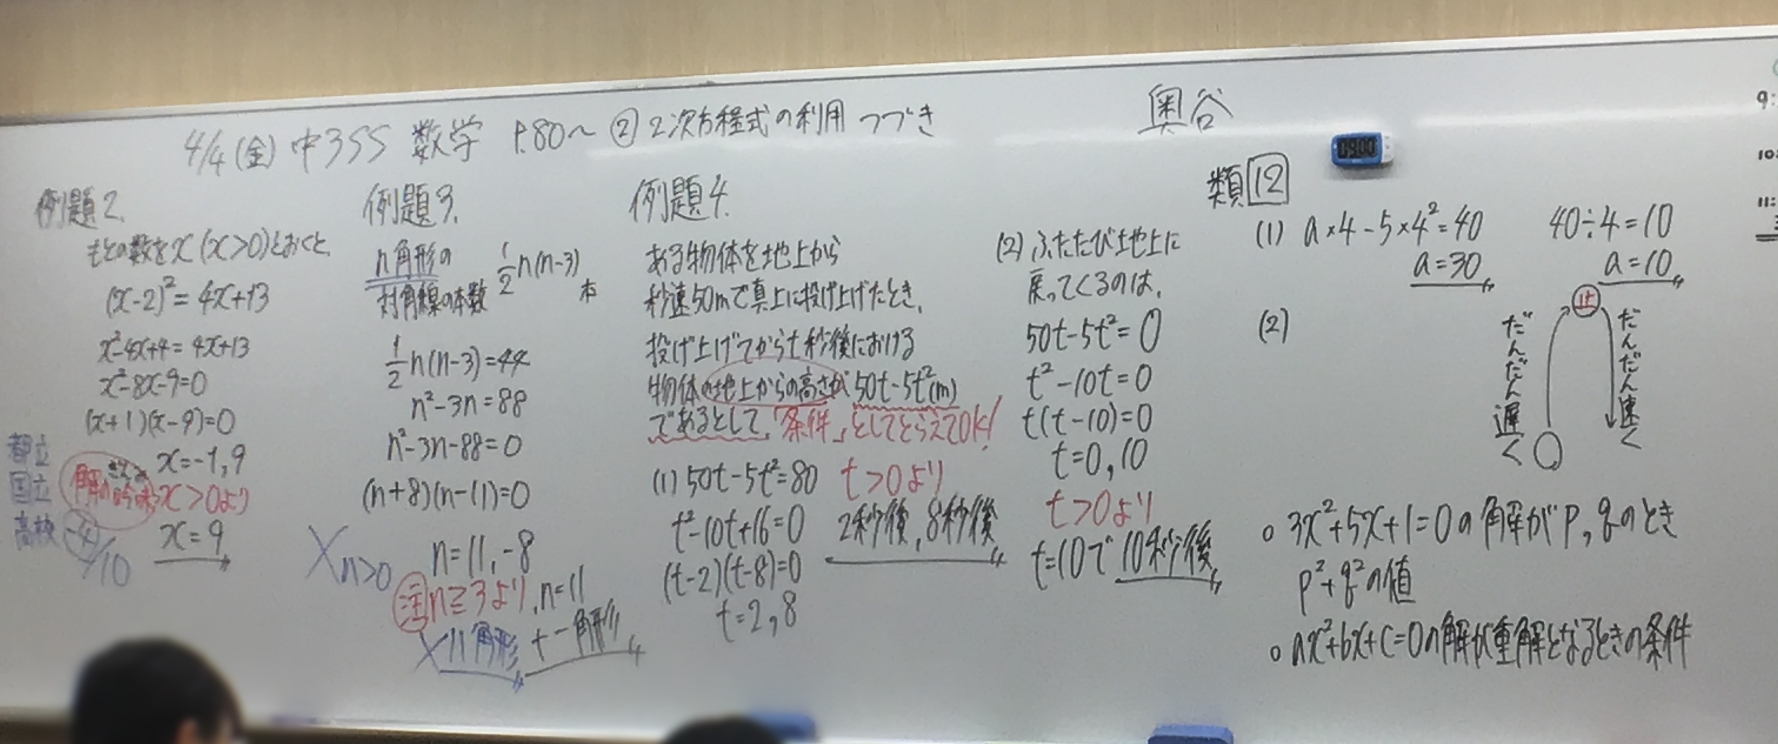 4/4(金) 中3SS 数学 P.80〜 ② 2次方程式の利用 つづき
奥谷
09:00
例題2.
もとの数をx(x>0)とおくと、
(x-2)²=4x+13
x²-4x+4=4x+13
x²-8x-9=0
(x+1)(x-9)=0
x=-1,9
解の吟味 x>0より
ぎんみ
x=9
都立
国立
高校
-4/10
例題3.
n角形の
対角線の本数 1/2n(n-3)本
1/2n(n-3)=44
n²-3n=88
n²-3n-88=0
(n+8)(n-11)=0
n=11,-8
×n>0
注 n≧3より,n=11
×11角形 十一角形
例題4.
ある物体を地上から
秒速50mで真上に投げ上げたとき、
投げ上げてからt秒後における
物体の地上からの高さが50t-5t²(m)
であるとして、「条件」としてとらえてOK!
(1) 50t-5t²=80
t²-10t+16=0
(t-2)(t-8)=0
t=2,8
t>0より
2秒後,8秒後
(2) ふたたび地上に
戻ってくるのは、
50t-5t²=0
t²-10t=0
t(t-10)=0
t=0,10
t>0より
t=10で10秒後
類12
(1) a×4-5×4²=40
a=30
40÷4=10
a=10
(2)
だんだん遅く
止
だんだん速く
○ 3x²+5x+1=0の解がp,qのとき
p²+q²の値
○ ax²+bx+c=0の解が重解となるときの条件
9:
10:
11: